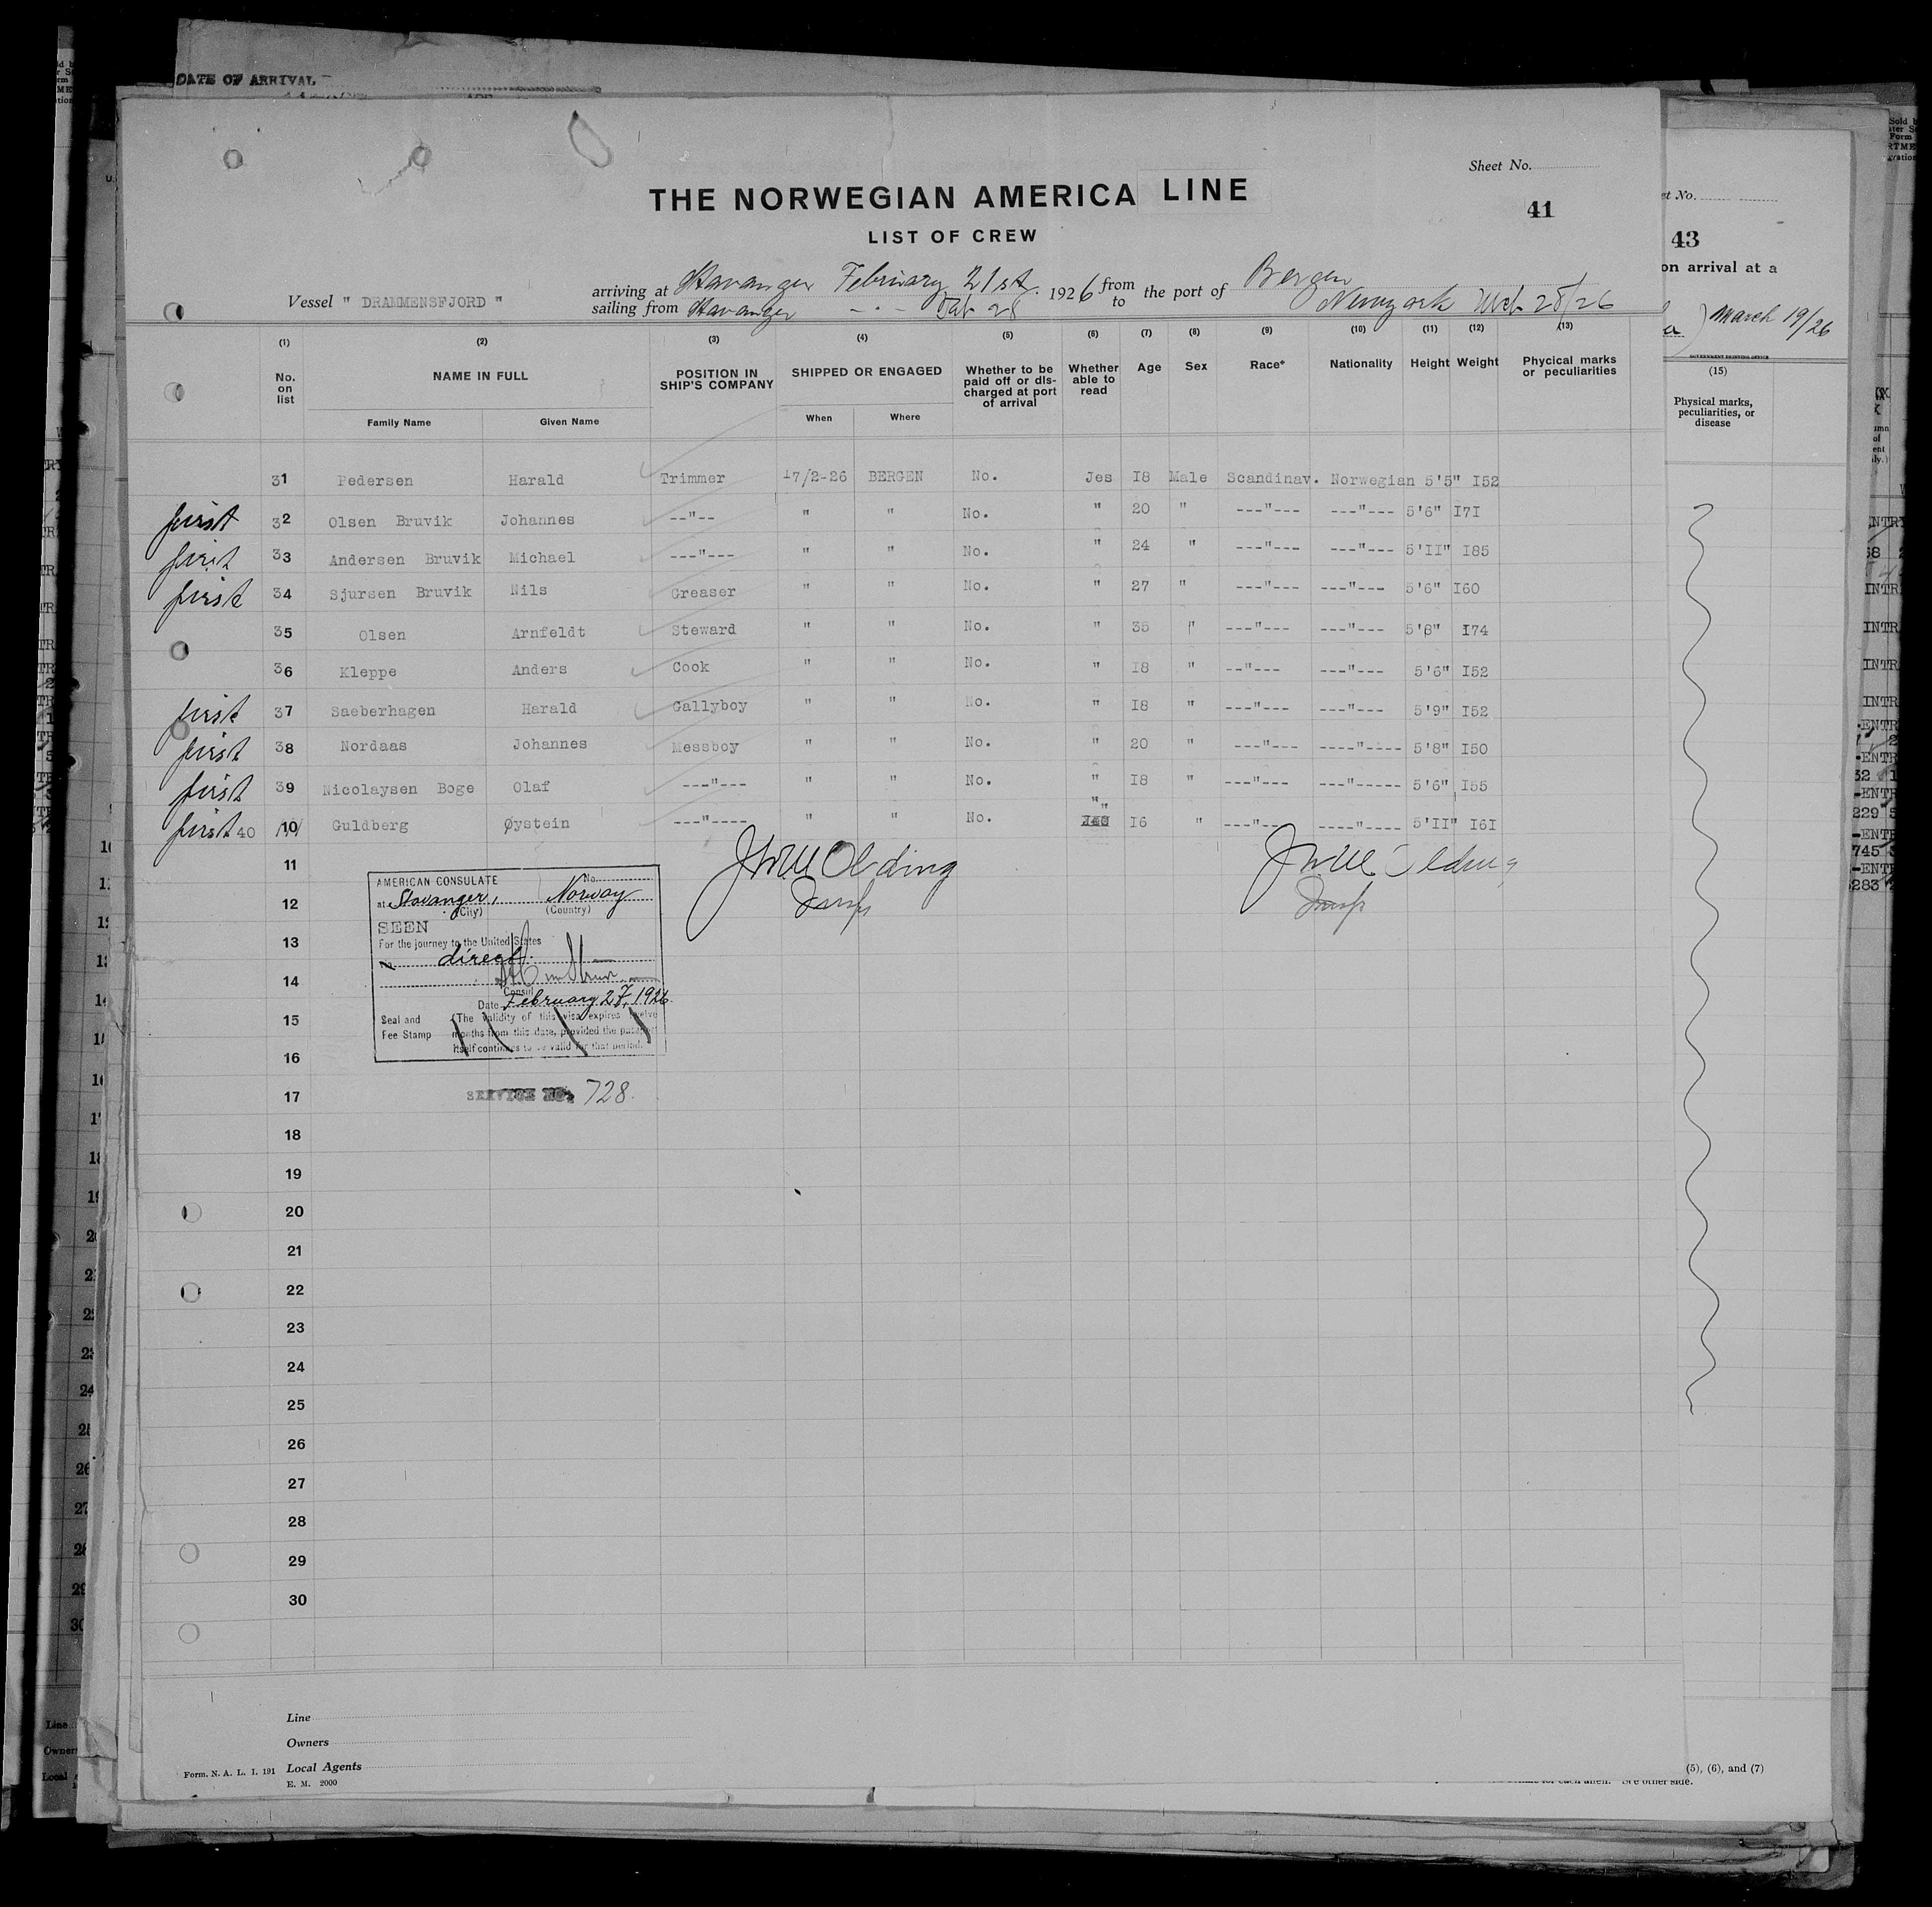 DATE OF ARRIVAL
Sheet No.
THE NORWEGIAN AMERICA LINE
41
LIST OF CREW
Vessel " DRAMMENSFJORD " arriving at Stavanger February 21st. 1926 from the port of Bergen
sailing from Stavanger - " - Feb 28 to Newyork Mch 28/26
(1) (2) (3) (4) (5) (6) (7) (8) (9) (10) (11) (12) (13)
No. on list NAME IN FULL POSITION IN SHIP'S COMPANY SHIPPED OR ENGAGED Whether to be paid off or discharged at port of arrival Whether able to read Age Sex Race* Nationality Height Weight Phycical marks or peculiarities
Family Name Given Name When Where
31 Pedersen Harald Trimmer 17/2-26 BERGEN No. Jes I8 Male Scandinav. Norwegian 5'5" I52
first 32 Olsen Bruvik Johannes --"-- " " No. " 20 " ---"--- ---"--- 5'6" I7I
first 33 Andersen Bruvik Michael ---"--- " " No. " 24 " ---"--- ---"--- 5'II" I85
first 34 Sjursen Bruvik Nils Greaser " " No. " 27 " ---"--- ---"--- 5'6" I60
35 Olsen Arnfeldt Steward " " No. " 35 " ---"--- ---"--- 5'8" I74
36 Kleppe Anders Cook " " No. " I8 " --"--- ---"--- 5'6" I52
first 37 Saeberhagen Harald Gallyboy " " No. " I8 " ---"--- ---"--- 5'9" I52
first 38 Nordaas Johannes Messboy " " No. " 20 " ---"--- ----"----- 5'8" I50
first 39 Nicolaysen Boge Olaf ---"--- " " No. " I8 " ---"--- ---"----- 5'6" I55
first 40 10 Guldberg Øystein ----"---- " " No. " I6 " ---"--- ----"---- 5'II" I6I
11
AMERICAN CONSULATE No.
at Stavanger, Norway
(City) (Country)
12
SEEN
13
For the journey to the United States
direct.
14
Consul
Date February 27, 1926.
15
Seal and Fee Stamp (The validity of this visa expires twelve
months from this date, provided the passport
itself continues to be valid for that period.
16
17
SERVICE NO. 728.
18
19
20
21
22
23
24
25
26
27
28
29
30
Line
Owners
Local Agents
Form. N. A. L. I. 191
E. M. 2000
43
on arrival at a
March 19/26
GOVERNMENT PRINTING OFFICE
(15)
Physical marks,
peculiarities, or
disease
(5), (6), and (7)
See other side.